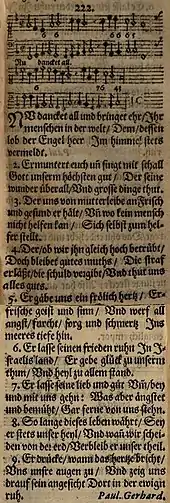 222.
Nu dancket all.
NUn dancket all und bringet ehr / Ihr
menschen in der welt / Dem / dessen
lob der Engel heer Im himmel stets
vermeldt.
2. Ermuntert euch uñ singt mit schall
Gott unserm höchsten gut / Der seine
wunder überall / Und grosse dinge thut.
3. Der uns von mutterleibe an Frisch
und gesund er hält / Uñ wo kein mensch
nicht helfen kan / Sich selbst zum hel-
fer stellt.
4. Der / ob wir ihn gleich hoch betrübt /
Doch bleibet gutes muths / Die straf
erläßt / die schuld vergibt / Und thut uns
alles guts.
5. Er gäbe uns ein frölich hertz / Er-
frische geist und sinn / Und werf all
angst / furcht / sorg und schmertz Ins
meeres tiefe hin.
6. Er lasse seinen frieden ruhn In J-
sraels land / Er gebe glück zu unserm
thun / Und heyl zu allem stand.
7. Er lasse seine lieb und güt Uñ / bey
und mit uns gehn: Was aber ängstet
und bemüht / Gar ferne von uns stehn.
8. So lange dieses leben währt / Sey
er stets unser heyl / Und wañ wir schei-
den von der erd / Verbleib er unser theil.
9. Er drücke / wann das hertze bricht /
Uns unsre augen zu / Und zeig uns
drauf sein angesicht Dort in der ewigen
ruh. Paul. Gerhard.